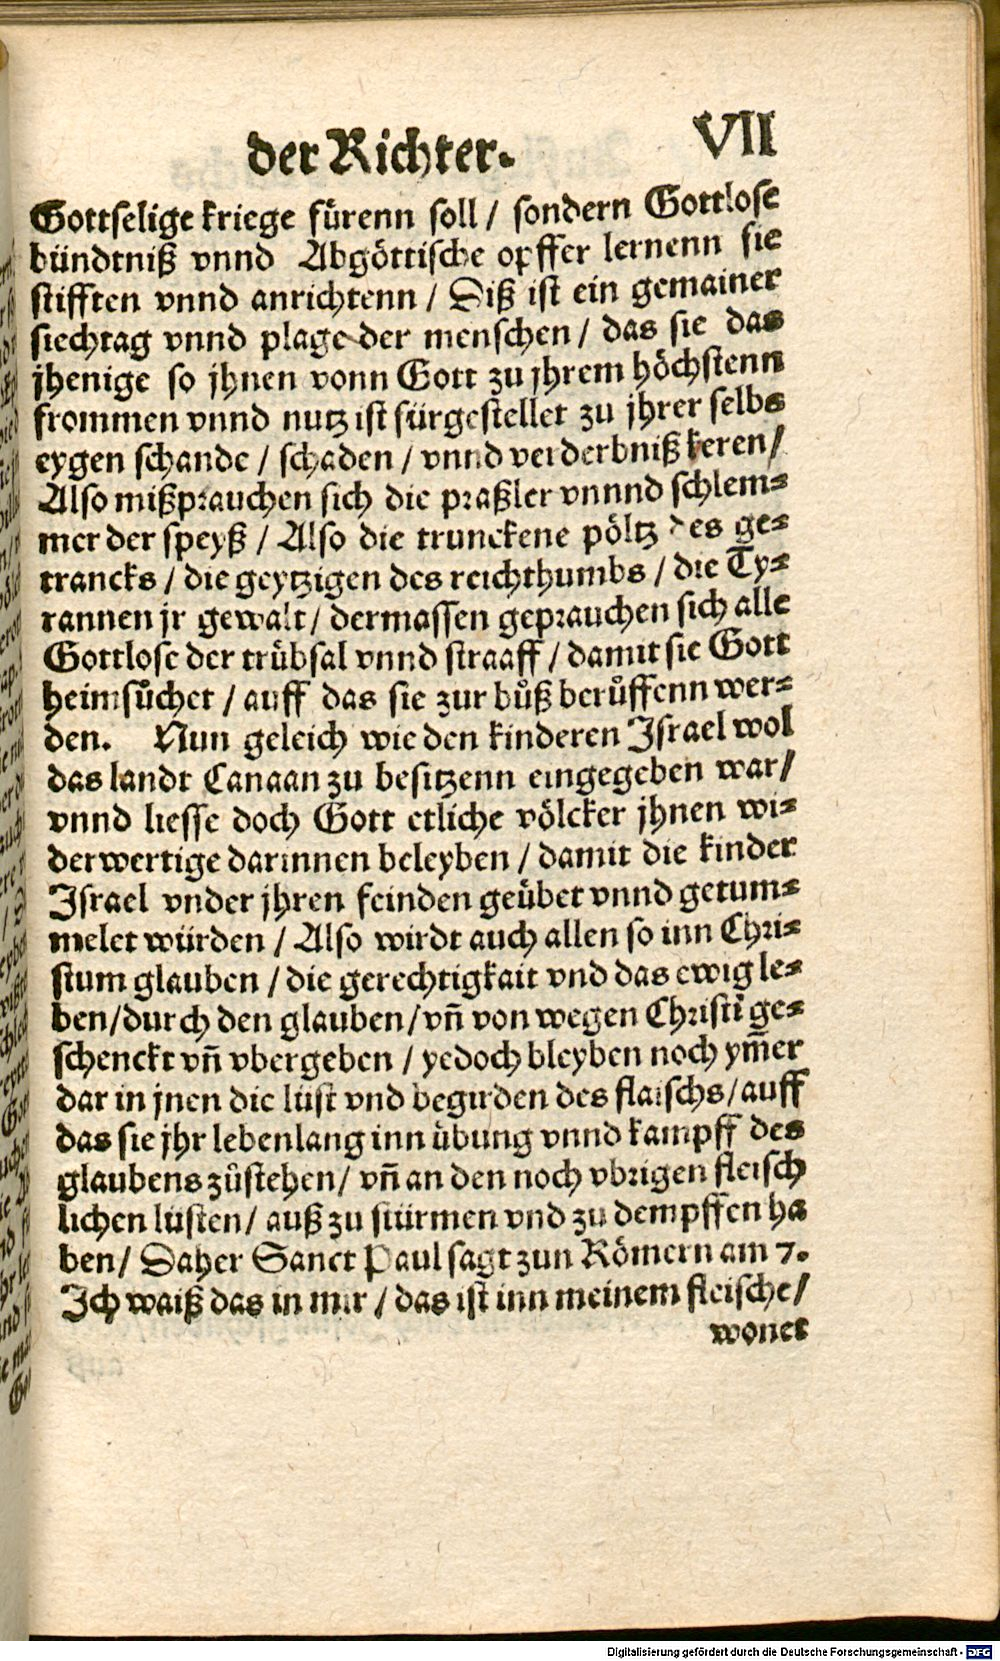 der Richter. VII
Gottselige kriege fürenn soll / sondern Gottlose
bündtniß vnnd Abgöttische opffer lernenn sie
stifften vnnd anrichtenn / Diß ist ein gemainer
siechtag vnnd plage der menschen / das sie das
jhenige so jhnen vonn Gott zu jhrem höchstenn
frommen vnnd nutz ist fürgestellet zu jhrer selbs
eygen schande / schaden / vnnd verderbniß keren /
Also mißprauchen sich die praßler vnnnd schlem⸗
mer der speyß / Also die trunckene pöltz des ge⸗
trancks / die geytzigen des reichthumbs / die Ty⸗
rannen jr gewalt / dermassen geprauchen sich alle
Gottlose der trübsal vnnd straaff / damit sie Gott
heimsůchet / auff das sie zur bůß berůffenn wer⸗
den. Nun geleich wie den kinderen Israel wol
das landt Canaan zu besitzenn eingegeben war /
vnnd liesse doch Gott etliche völcker jhnen wi⸗
derwertige darinnen beleyben / damit die kinder
Israel vnder jhren feinden geübet vnnd getum⸗
melet würden / Also wirdt auch allen so inn Chri⸗
stum glauben / die gerechtigkait vnd das ewig le⸗
ben / durch den glauben / vñ von wegen Christi ge⸗
schenckt vñ vbergeben / yedoch bleyben noch ym̃er
dar in jnen die lüst vnd begirden des flaischs / auff
das sie jhr lebenlang inn übung vnnd kampff des
glaubens zůstehen / vñ an den noch vbrigen fleisch
lichen lüsten / auß zu stürmen vnd zu dempffen ha
ben / Daher Sanct Paul sagt zun Römern am 7.
Ich waiß das in mir / das ist inn meinem fleische /
wonet
Digitalisierung gefördert durch die Deutsche Forschungsgemeinschaft - DFG